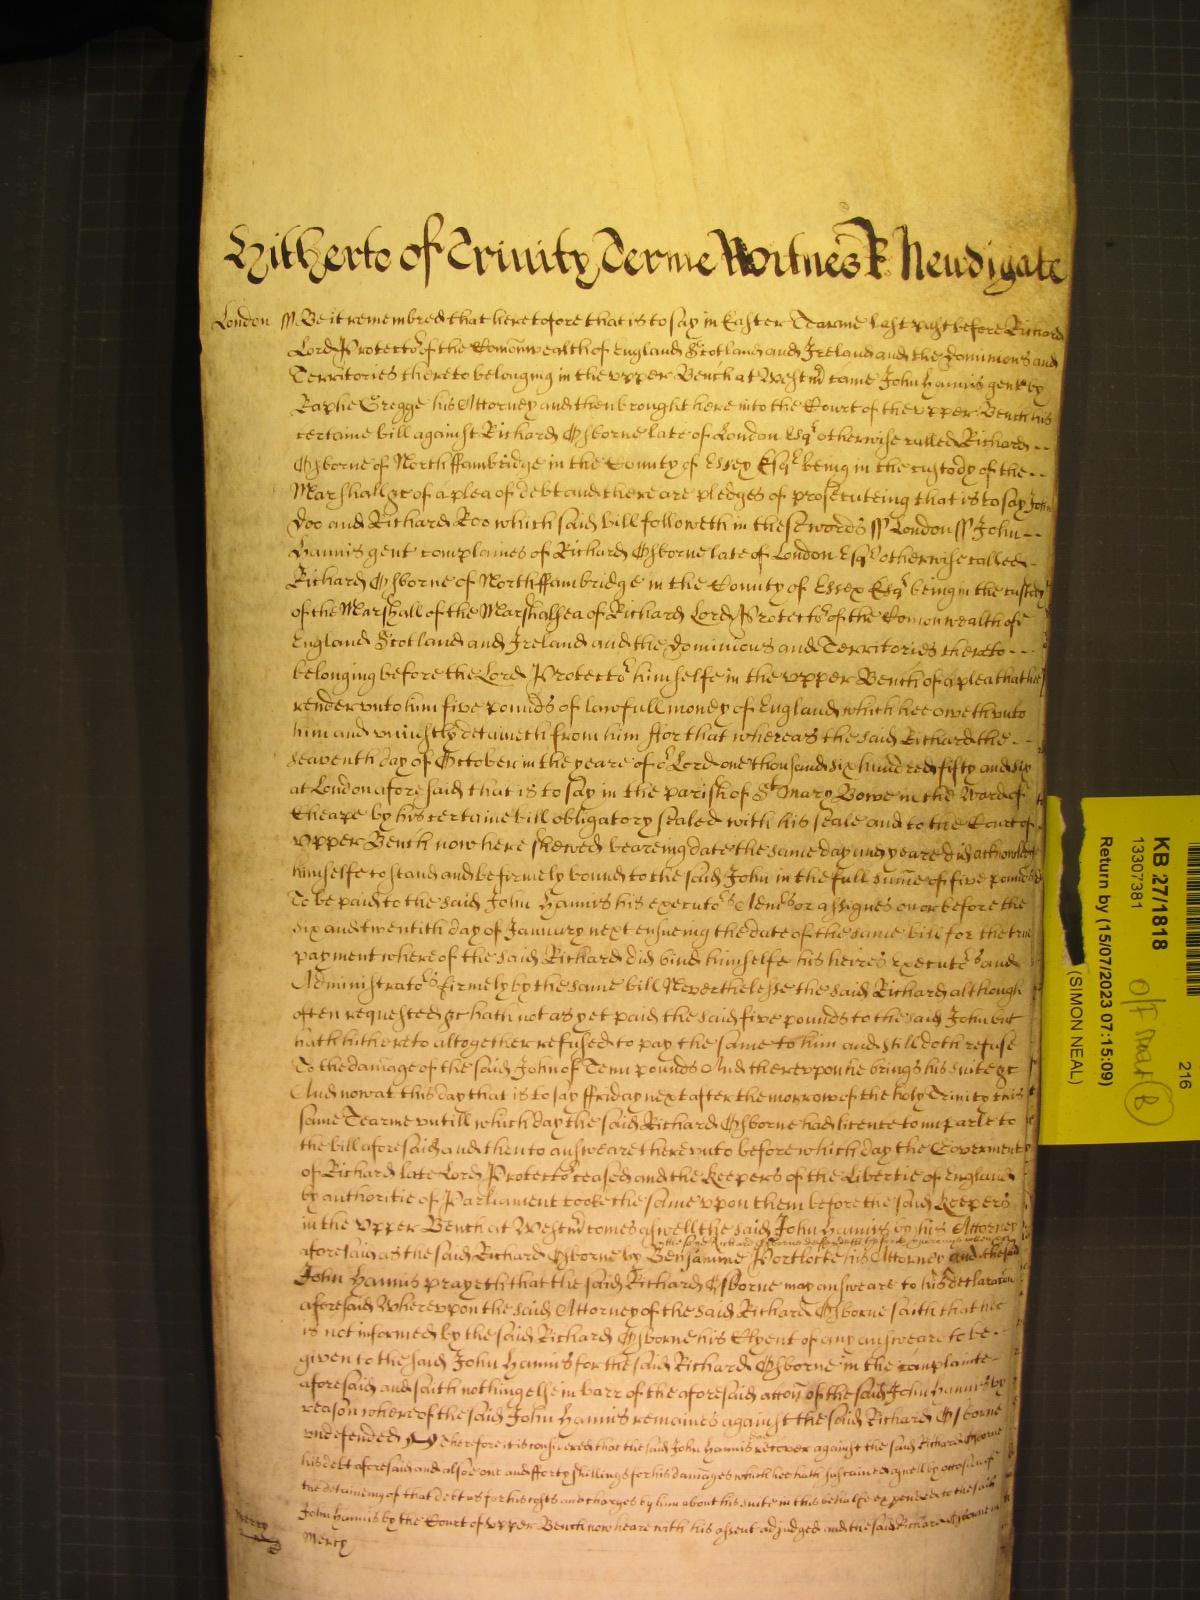 Hitherto of Trinity Terme Witnes R Newdigate
London ss Be it remembred that heretofore that is to say in Easter Tearme last past before Richard
Lord Protector of the Comonwealth of England Scotland and Ireland and the Dominions and
Territories thereto belonging in the vpper Bench at Westm came John Hannis gent by
Raphe Gregge his Attorney and then brought here into the Court of the vpper Bench his
certaine bill against Richard Osborne late of London Esqr otherwise called Richard --
Osborne of North ffambridge in the County of Essex Esqr being in the custody of the --
Marshall &c of a plea of debt and there are pledges of prosecuteing that is to say John
Doo and Richard Roo which said bill followeth in these words ss London ss John --
Hannis gent complaines of Richard Osborne late of London Esqr otherwise called -
Richard Osborne of North ffambridge in the County of Essex Esqr being in the custody
of the Marshall of the Marshalsea of Richard Lord Protector of the Comonwealth of
England Scotland and Ireland and the Dominions and Territories thereto ---
belonging before the Lord Protector himselfe in the vpper Bench of a plea that he
render vnto him five pounds of lawfull money of England which hee oweth vnto
him and vniustly detaineth from him ffor that whereas the said Richard the --
seaventh day of October in the yeare of or Lord one thousand six hundred fifty and six
at London aforesaid that is to say in the parish of St Mary Bowe in the Ward of
Cheape by his certaine bill obligatory sealed with his seale and to the Court of
vpper Bench now here shewed beareing date the same day and yeare did acknowledge
himselfe to stand and be firmely bound to the said John in the full sume of five pounds
To be paid to the said John Hannis his executors Admrs or assignes on or before the
six and twentith day of January next ensueing the date of the same bill for the true
payment whereof the said Richard did bind himselfe his heires executors and
Administrators firmely by the same bill Neverthelesse the said Richard although
often requested &c hath not as yet paid the said five pounds to the said John but
hath hithereto altogether refused to pay the same to him and still doth refuse
To the damage of the said John of Tenn pounds And therevpon he brings his suite &c
And now at this day that is to say ffriday next after the morrow of the holy Trinity this
same Tearme vntill which day the said Richard Osborne had licence to imparle to
the bill aforesaid and then to answeare therevnto before which day the Goverment
of Richard late Lord Protector ceased and the Keepers of the Libertie of England
by authoritie of Parliament tooke the same vpon them before the said Keepers
in the vpper Bench at Westm comes aswell the said John Hannis by his Attorney
aforesaid as the said Richard Osborne by Benjamine Portlocke his Attorney and the said
John Hannis prayeth that the said Richard Osborne may answeare to his declaracon
aforesaid Wherevpon the said Attorney of the said Richard Osborne saith that hee
is not informed by the said Richard Osborne his Clyent of any answeare to be -
given to the said John Hannis for the said Richard Osborne in the complainte -
aforesaid and saith nothing else in barr of the aforesaid accon of the said John Hannis by
reason whereof the said John Hannis remaines against the said Richard Osborne
vndefended Therefore it is considered that the said John Hannis recover against the said Richard Osborne
his debt aforesaid and alsoe one and fforty shillings for his damages which hee hath sustained aswell by occasion of
the detaineing of that debt as for his costs and charges by him about his suite in this behalfe expended to the said
John Hannis by the Court of vpper Bench now heare with his assent adjudged and the said Richard Osborne in
Mercy
Mercy
KB 27/1818
13307381
Return by (15/07/2023 07:15:09)
(SIMON NEAL)
216